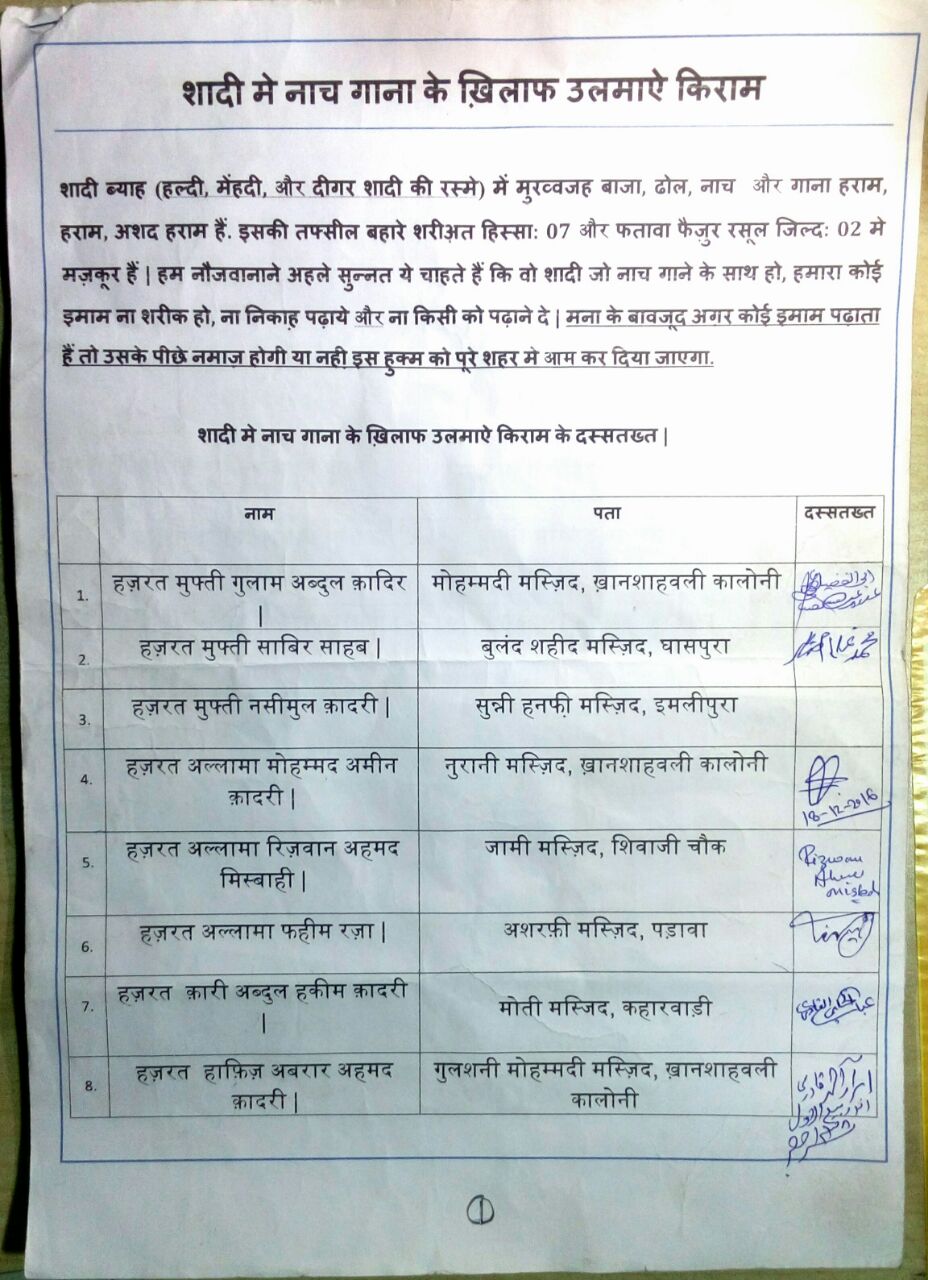 शादी मे नाच गाना के ख़िलाफ उलमाऐ किराम
शादी ब्याह (हल्दी, मेंहदी, और दीगर शादी की रस्मे) में मुरव्वजह बाजा, ढोल, नाच और गाना हराम,
हराम, अशद हराम हैं. इसकी तफ्सील बहारे शरीअ़त हिस्सा: 07 और फतावा फैज़ुर रसूल जिल्द: 02 मे
मज़कूर हैं | हम नौजवानाने अहले सुन्नत ये चाहते हैं कि वो शादी जो नाच गाने के साथ हो, हमारा कोई
इमाम ना शरीक हो, ना निकाह पढ़ाये और ना किसी को पढ़ाने दे | मना के बावजूद अगर कोई इमाम पढ़ाता
हैं तो उसके पीछे नमाज़ होगी या नही इस हुक्म को पूरे शहर मे आम कर दिया जाएगा.
शादी मे नाच गाना के ख़िलाफ उलमाऐ किराम के दस्सतख्त |
नाम पता दस्सतख्त
1. हज़रत मुफ्ती गुलाम अब्दुल क़ादिर मोहम्मदी मस्ज़िद, ख़ानशाहवली कालोनी
|
2. हज़रत मुफ्ती साबिर साहब | बुलंद शहीद मस्ज़िद, घासपुरा
3. हज़रत मुफ्ती नसीमुल क़ादरी | सुन्नी हनफी़ मस्ज़िद, इमलीपुरा
4. हज़रत अल्लामा मोहम्मद अमीन नुरानी मस्ज़िद, ख़ानशाहवली कालोनी
क़ादरी |
18-12-2016
5. हज़रत अल्लामा रिज़वान अहमद जामी मस्ज़िद, शिवाजी चौक
मिस्बाही |
Rizwan
6. हज़रत अल्लामा फहीम रज़ा | अशरफ़ी मस्ज़िद, पड़ावा
7. हज़रत क़ारी अब्दुल हकीम क़ादरी मोती मस्जिद, कहारवाड़ी
|
8. हज़रत हाफ़िज़ अबरार अहमद गुलशनी मोहम्मदी मस्ज़िद, ख़ानशाहवली
क़ादरी | कालोनी
1